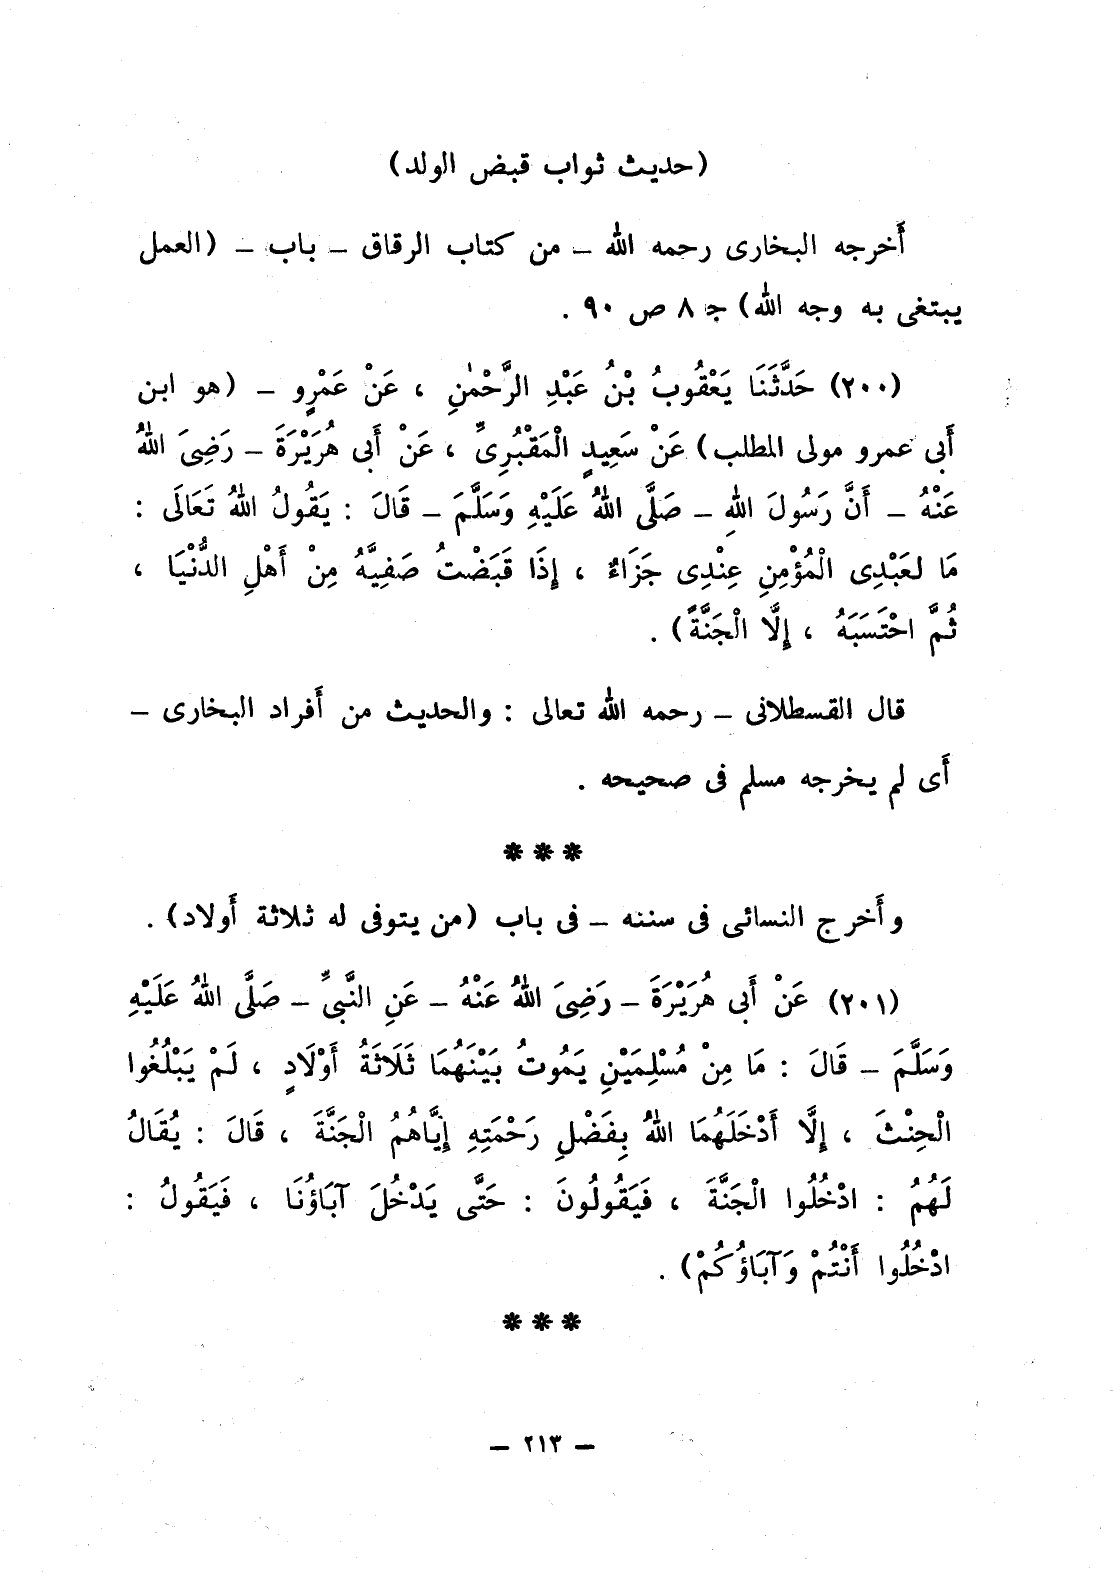 (حديث ثواب قبض الولد)
أَخرجه البخارى رحمه الله – من كتاب الرقاق – باب – (العمل
يبتغى به وجه الله) جـ ٨ ص ٩٠ .
(٢٠٠) حَدَّثَنَا يَعْقُوبُ بْنُ عَبْدِ الرَّحْمٰنِ ، عَنْ عَمْرٍو – (هو ابن
أَبى عمرو مولى المطلب) عَنْ سَعِيدٍ الْمَقْبُرِىِّ ، عَنْ أَبى هُرَيْرَةَ – رَضِىَ اللهُ
عَنْهُ – أَنَّ رَسُولَ اللهِ – صَلَّى اللهُ عَلَيْهِ وَسَلَّمَ – قَالَ : يَقُولُ اللهُ تَعَالَى :
مَا لعَبْدِى الْمُؤْمِنِ عِنْدِى جَزَاءٌ ، إِذَا قَبَضْتُ صَفِيَّهُ مِنْ أَهْلِ الدُّنْيَا ،
ثُمَّ احْتَسَبَهُ ، إِلَّا الْجَنَّةَ) .
قال القسطلانى – رحمه الله تعالى : والحديث من أَفراد البخارى –
أَى لم يخرجه مسلم فى صحيحه .
***
وأَخرج النسائى فى سننه – فى باب (من يتوفى له ثلاثة أَولاد) .
(٢٠١) عَنْ أَبى هُرَيْرَةَ – رَضِىَ اللهُ عَنْهُ – عَنِ النَّبىِّ – صَلَّى اللهُ عَلَيْهِ
وَسَلَّمَ – قَالَ : مَا مِنْ مُسْلِمَيْنِ يَمُوتُ بَيْنَهُمَا ثَلَاثَةُ أَوْلَادٍ ، لَمْ يَبْلُغُوا
الْحِنْثَ ، إِلَّا أَدْخَلَهُمَا اللهُ بِفَضْلِ رَحْمَتِهِ إِيَّاهُمُ الْجَنَّةَ ، قَالَ : يُقَالُ
لَهُمُ : ادْخُلُوا الْجَنَّةَ ، فَيَقُولُونَ : حَتَّى يَدْخُلَ آبَاؤُنَا ، فَيَقُولُ :
ادْخُلُوا أَنْتُمْ وَآبَاؤُكُمْ) .
***
– ٢١٣ –